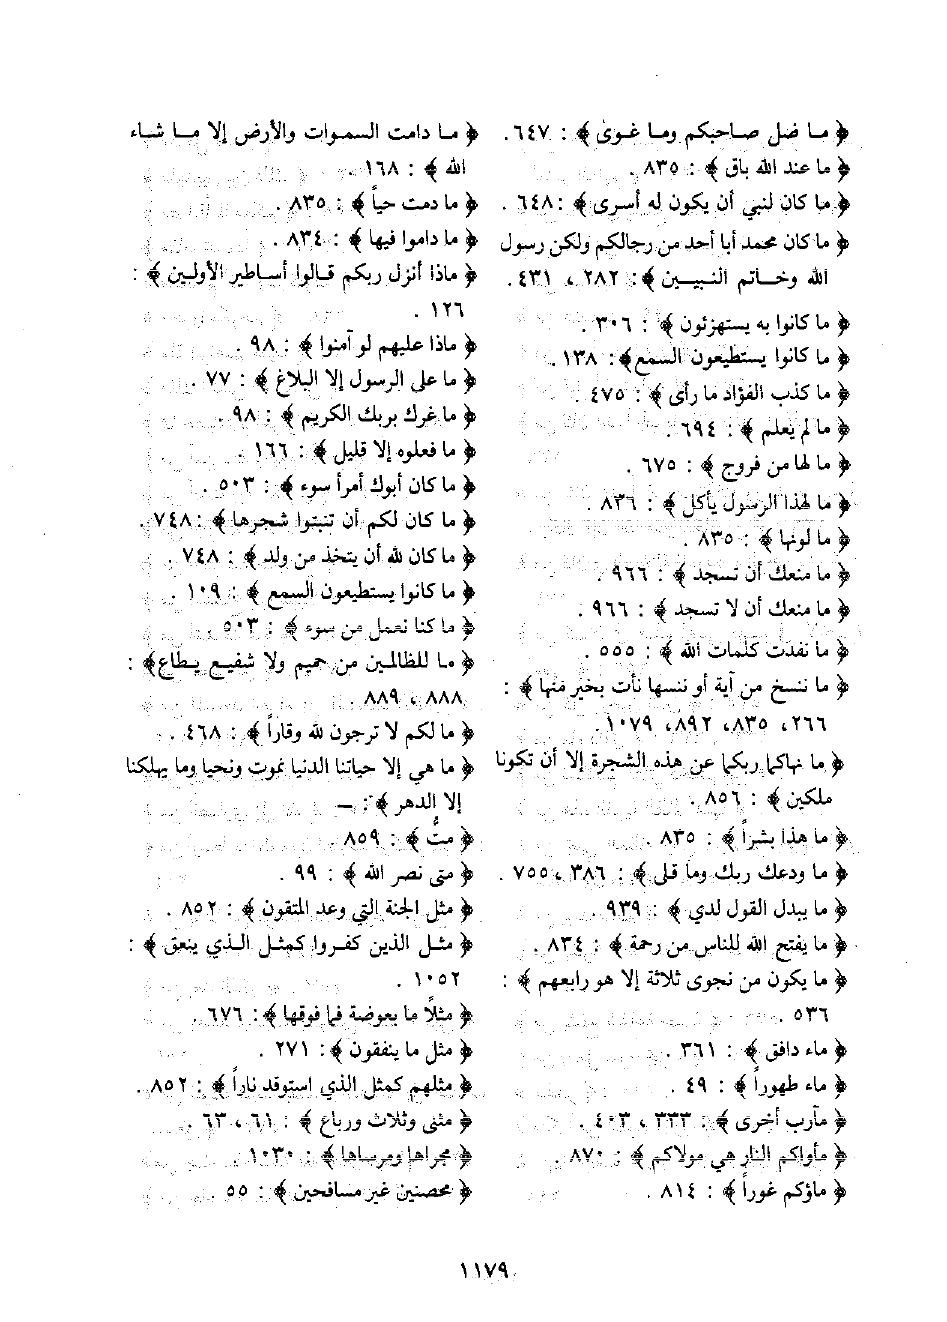 ﴿ ما ضل صاحبكم وما غوى ﴾ : ٦٤٧ .
﴿ ما عند الله باق ﴾ : ٨٣٥ .
﴿ ما كان لنبي أن يكون له أسرى ﴾ : ٦٤٨ .
﴿ ما كان محمد أبا أحد من رجالكم ولكن رسول
الله وخاتم النبيين ﴾ : ٢٨٢ ، ٤٣١ .
﴿ ما كانوا به يستهزئون ﴾ : ٣٠٦ .
﴿ ما كانوا يستطيعون السمع ﴾ : ١٣٨ .
﴿ ما كذب الفؤاد ما رأى ﴾ : ٤٧٥ .
﴿ ما لم يعلم ﴾ : ٦٩٤ .
﴿ ما لها من فروج ﴾ : ٦٧٥ .
﴿ ما لهذا الرسول يأكل ﴾ : ٨٣٦ .
﴿ ما لونها ﴾ : ٨٣٥ .
﴿ ما منعك أن تسجد ﴾ : ٩٦٦ .
﴿ ما منعك أن لا تسجد ﴾ : ٩٦٦ .
﴿ ما نفدت كلمات الله ﴾ : ٥٥٥ .
﴿ ما ننسخ من آية أو ننسها نأت بخير منها ﴾ :
٢٦٦ ، ٨٣٥ ، ٨٩٢ ، ١٠٧٩ .
﴿ ما نهاكما ربكما عن هذه الشجرة إلا أن تكونا
ملكين ﴾ : ٨٥٦ .
﴿ ما هذا بشراً ﴾ : ٨٣٥ .
﴿ ما ودعك ربك وما قلى ﴾ : ٣٨٦ ، ٧٥٥ .
﴿ ما يبدل القول لدي ﴾ : ٩٣٩ .
﴿ ما يفتح الله للناس من رحمة ﴾ : ٨٣٤ .
﴿ ما يكون من نجوى ثلاثة إلا هو رابعهم ﴾ :
٥٣٦ .
﴿ ماء دافق ﴾ : ٣٦١ .
﴿ ماء طهوراً ﴾ : ٤٩ .
﴿ مآرب أخرى ﴾ : ٣٣٣ ، ٤٠٣ .
﴿ مأواكم النار هي مولاكم ﴾ : ٨٧٠ .
﴿ ماؤكم غوراً ﴾ : ٨١٤ .
﴿ ما دامت السموات والأرض إلا ما شاء
الله ﴾ : ١٦٨ .
﴿ ما دمت حياً ﴾ : ٨٣٥ .
﴿ ما داموا فيها ﴾ : ٨٣٤ .
﴿ ماذا أنزل ربكم قالوا أساطير الأولين ﴾ :
١٢٦ .
﴿ ماذا عليهم لو آمنوا ﴾ : ٩٨ .
﴿ ما على الرسول إلا البلاغ ﴾ : ٧٧ .
﴿ ما غرك بربك الكريم ﴾ : ٩٨ .
﴿ ما فعلوه إلا قليل ﴾ : ١٦٦ .
﴿ ما كان أبوك أمرأ سوء ﴾ : ٥٠٣ .
﴿ ما كان لكم أن تنبتوا شجرها ﴾ : ٧٤٨ .
﴿ ما كان لله أن يتخذ من ولد ﴾ : ٧٤٨ .
﴿ ما كانوا يستطيعون السمع ﴾ : ١٠٩ .
﴿ ما كنا نعمل من سوء ﴾ : ٥٠٣ .
﴿ ما للظالمين من حميم ولا شفيع يطاع ﴾ :
٨٨٨ ، ٨٨٩ .
﴿ ما لكم لا ترجون لله وقاراً ﴾ : ٤٦٨ .
﴿ ما هي إلا حياتنا الدنيا نموت ونحيا وما يهلكنا
إلا الدهر ﴾ : —
﴿ متُّ ﴾ : ٨٥٩ .
﴿ متى نصر الله ﴾ : ٩٩ .
﴿ مثل الجنة التي وعد المتقون ﴾ : ٨٥٢ .
﴿ مثل الذين كفروا كمثل الذي ينعق ﴾ :
١٠٥٢ .
﴿ مثلاً ما بعوضة فما فوقها ﴾ : ٦٧٦ .
﴿ مثل ما ينفقون ﴾ : ٢٧١ .
﴿ مثلهم كمثل الذي استوقد ناراً ﴾ : ٨٥٢ .
﴿ مثنى وثلاث ورباع ﴾ : ٦١ ، ٦٣ .
﴿ مجراها ومرساها ﴾ : ١٠٣٠ .
﴿ محصنين غير مسافحين ﴾ : ٥٥ .
١١٧٩